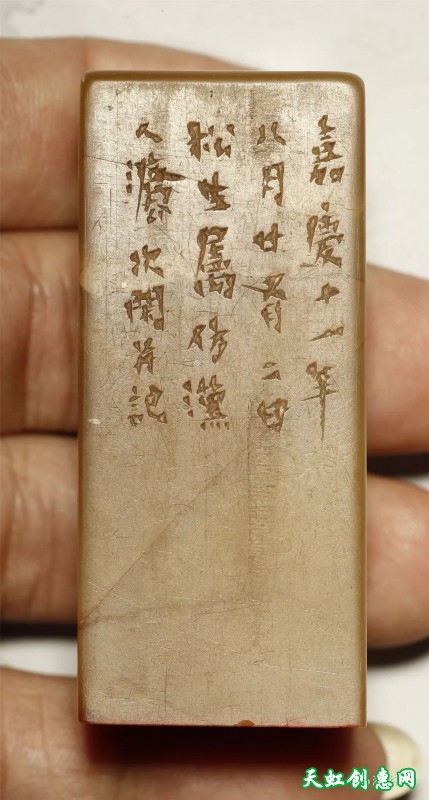 嘉慶十一年
八月廿有二日
松生屬仿漢
人灋次閑并記
天虹创惠网